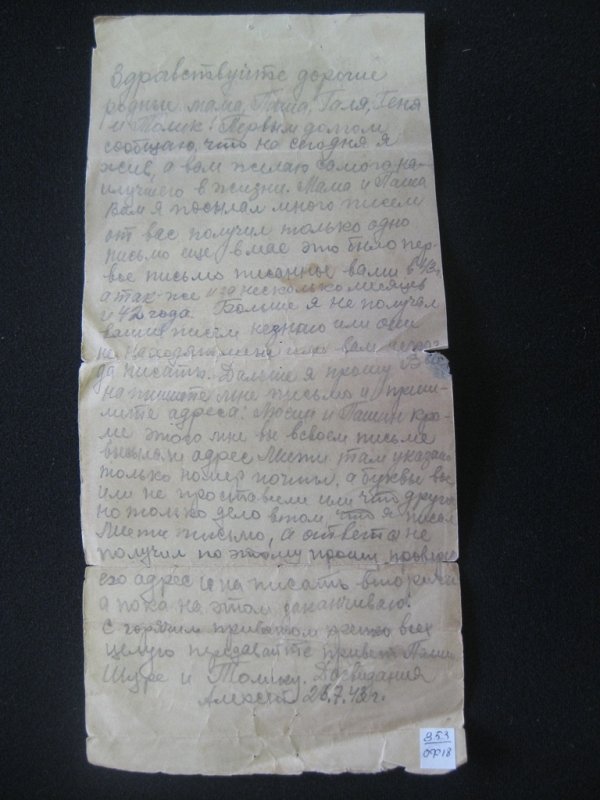 Здравствуйте дорогие
родные мама, Паша, Галя, Геня
и Толик! Первым долгом
сообщаю, что на сегодня я
жив, а вам желаю самого на-
илучшего в жизни. Мама и Паша
Вам я посылал много писем
от вас получил только одно
письмо еще в мае это было пер-
вое письмо писанное вами в 43г.
а так-же и за несколько месяцев
и 42 года. Больше я не получал
ваших писем незнаю или они
не находят меня или вам неког-
да писать. Дальше я прошу Вас
напишите мне письмо и приш-
лите адреса: и Пашин кро-
ме этого мне вы в своем письме
выслали адрес Мити там указан
только номер почты, а буквы вы
или не проставили или что другое
но только дело в том что я писал
Мити письмо, а ответа не
получил по этому прошу
его адрес и на писать вторично
а пока на этом заканчиваю.
С горячим приветом крепко всех
целую передавайте привет
Шуре и Толику. Досвидания
Алексей 28.7.43 г.
353
ОФ18